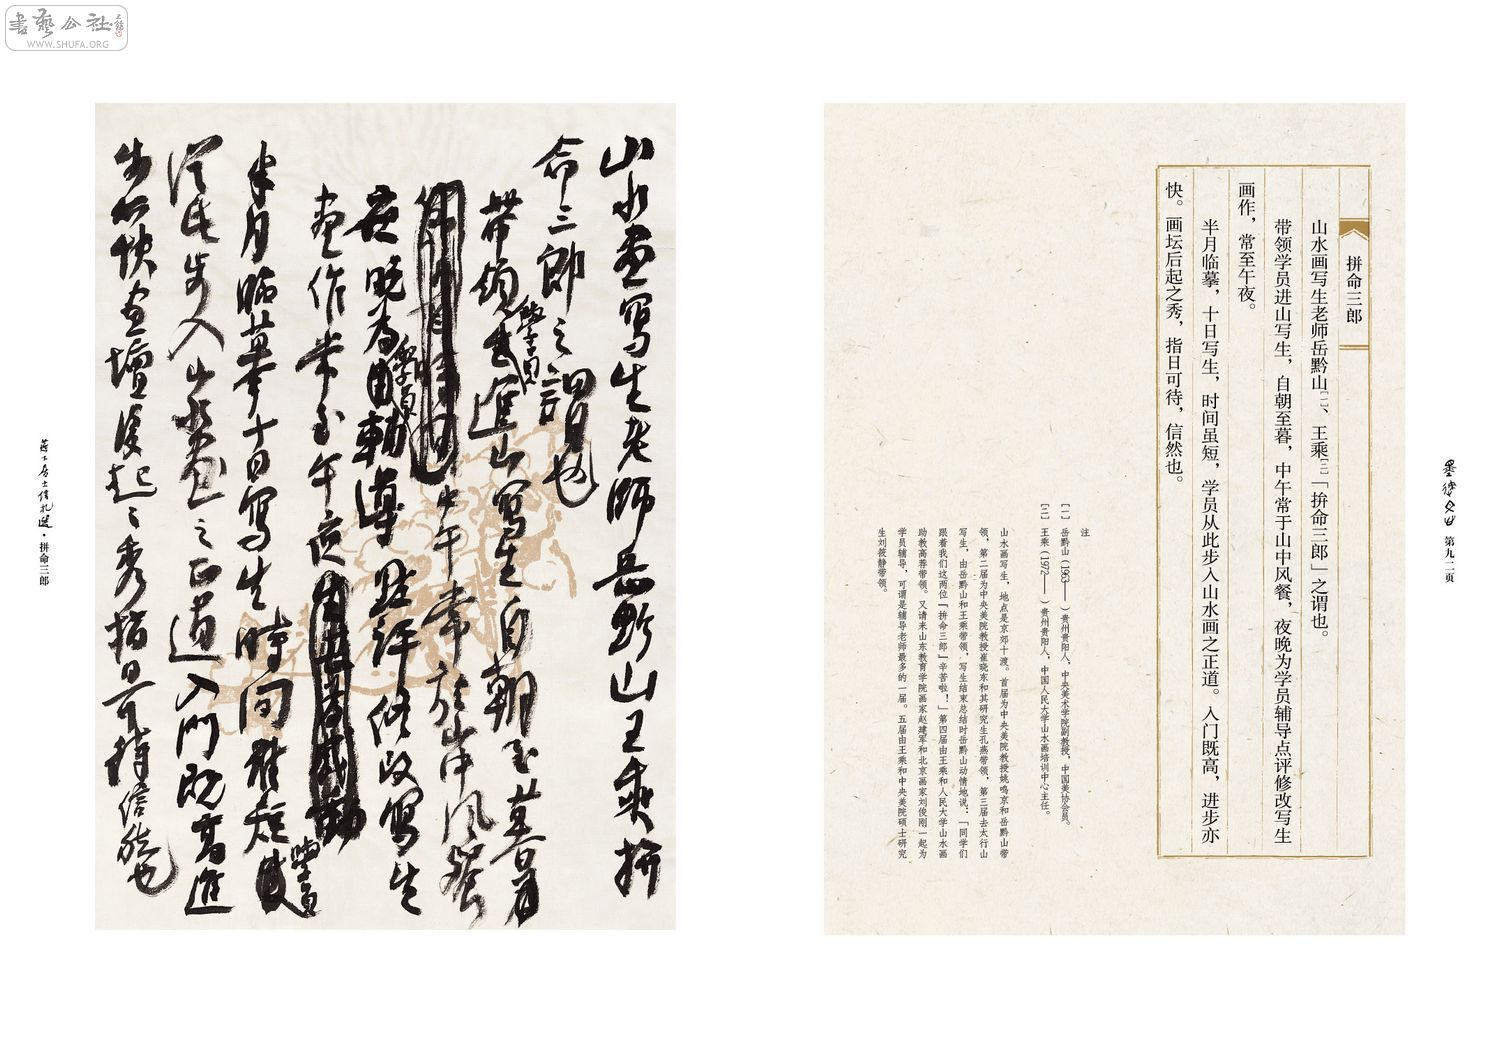 書藝公社
WWW.SHUFA.ORG
第九二页
拼命三郎
山水画写生老师岳黔山[一]、王乘[二]「拚命三郎」之谓也。
带领学员进山写生，自朝至暮，中午常于山中风餐，夜晚为学员辅导点评修改写生
画作，常至午夜。
半月临摹，十日写生，时间虽短，学员从此步入山水画之正道。入门既高，进步亦
快。画坛后起之秀，指日可待，信然也。
注
[一] 岳黔山（1963——　）贵州贵阳人，中央美术学院副教授，中国美协会员。
[二] 王乘（1972——　）贵州贵阳人，中国人民大学山水画培训中心主任。
山水画写生，地点是京郊十渡。首届为中央美院教授姚鸣京和岳黔山带
领，第二届为中央美院教授崔晓东和其研究生孔燕带领，第三届去太行山
写生，由岳黔山和王乘带领，写生结束总结时岳黔山动情地说：「同学们
跟着我们这两位『拚命三郎』辛苦啦！」第四届由王乘和人民大学山水画
助教高蓉带领。又请来山东教育学院画家赵建军和北京画家刘俊刚一起为
学员辅导，可谓是辅导老师最多的一届。五届由王乘和中央美院硕士研究
生刘筱静带领。
山水畫寫生老師岳黔山王乘拚
命三郎之謂也
帶領學員進山寫生自朝至暮
中午常於山中風餐
夜晚為學員輔導點評修改寫生
畫作常至午夜
半月臨摹十日寫生時間雖短學員
從此步入山水畫之正道入門既高進
步亦快畫壇後起之秀指日可待信然也
拼命三郎